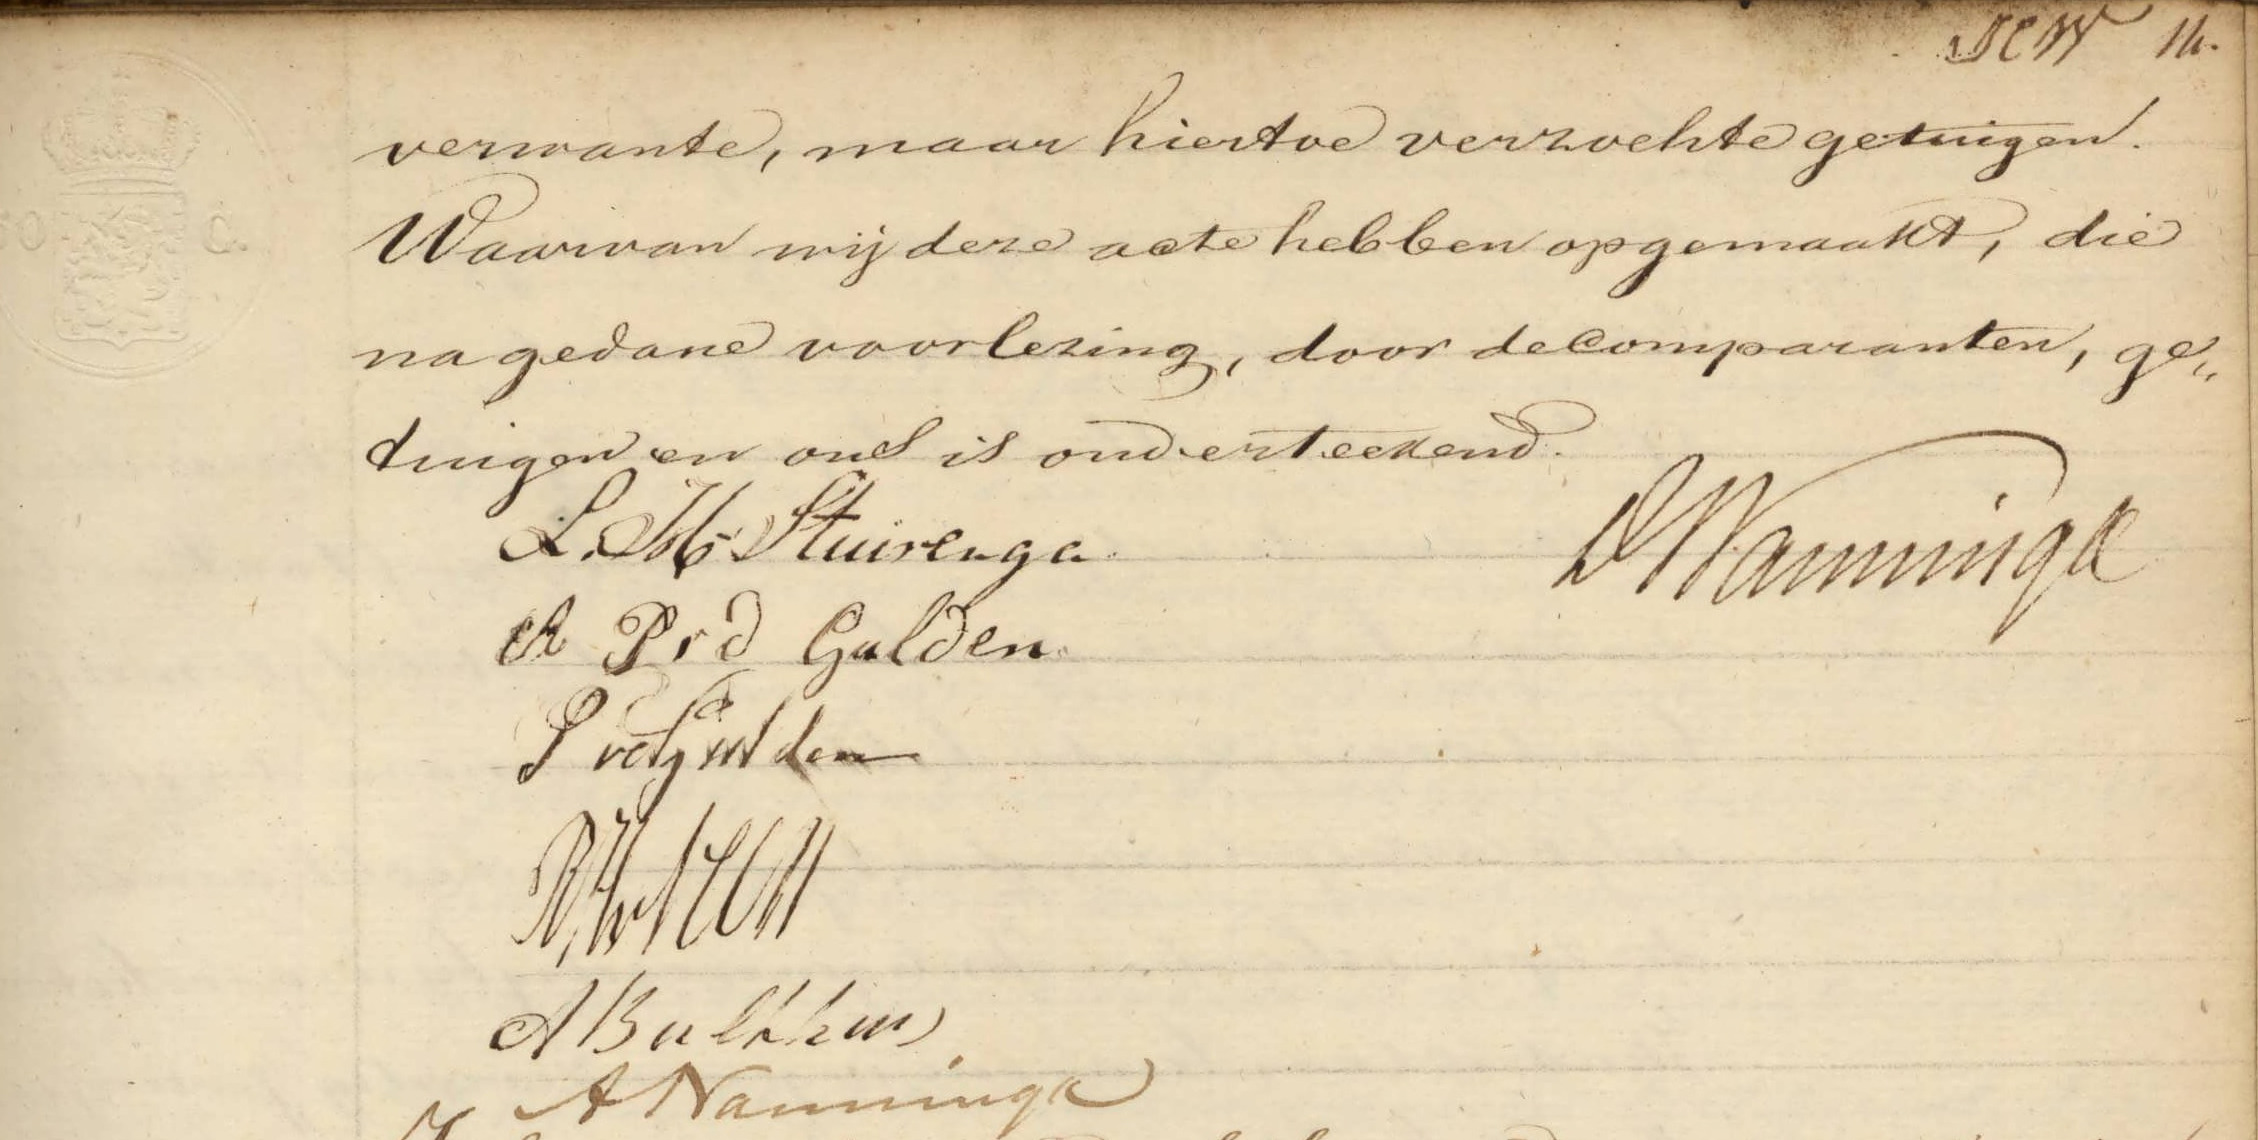 11.
verwante, maar hiertoe verzochte getuigen.
Waarvan wij deze acte hebben opgemaakt, die
na gedane voorlezing, door de comparanten, ge„
tuigen en ons is onderteekend.
L. H. Stuivenga
DNanninga
A P v d Gulden
P vd Gulden
A Bulthuis
A Nanninga